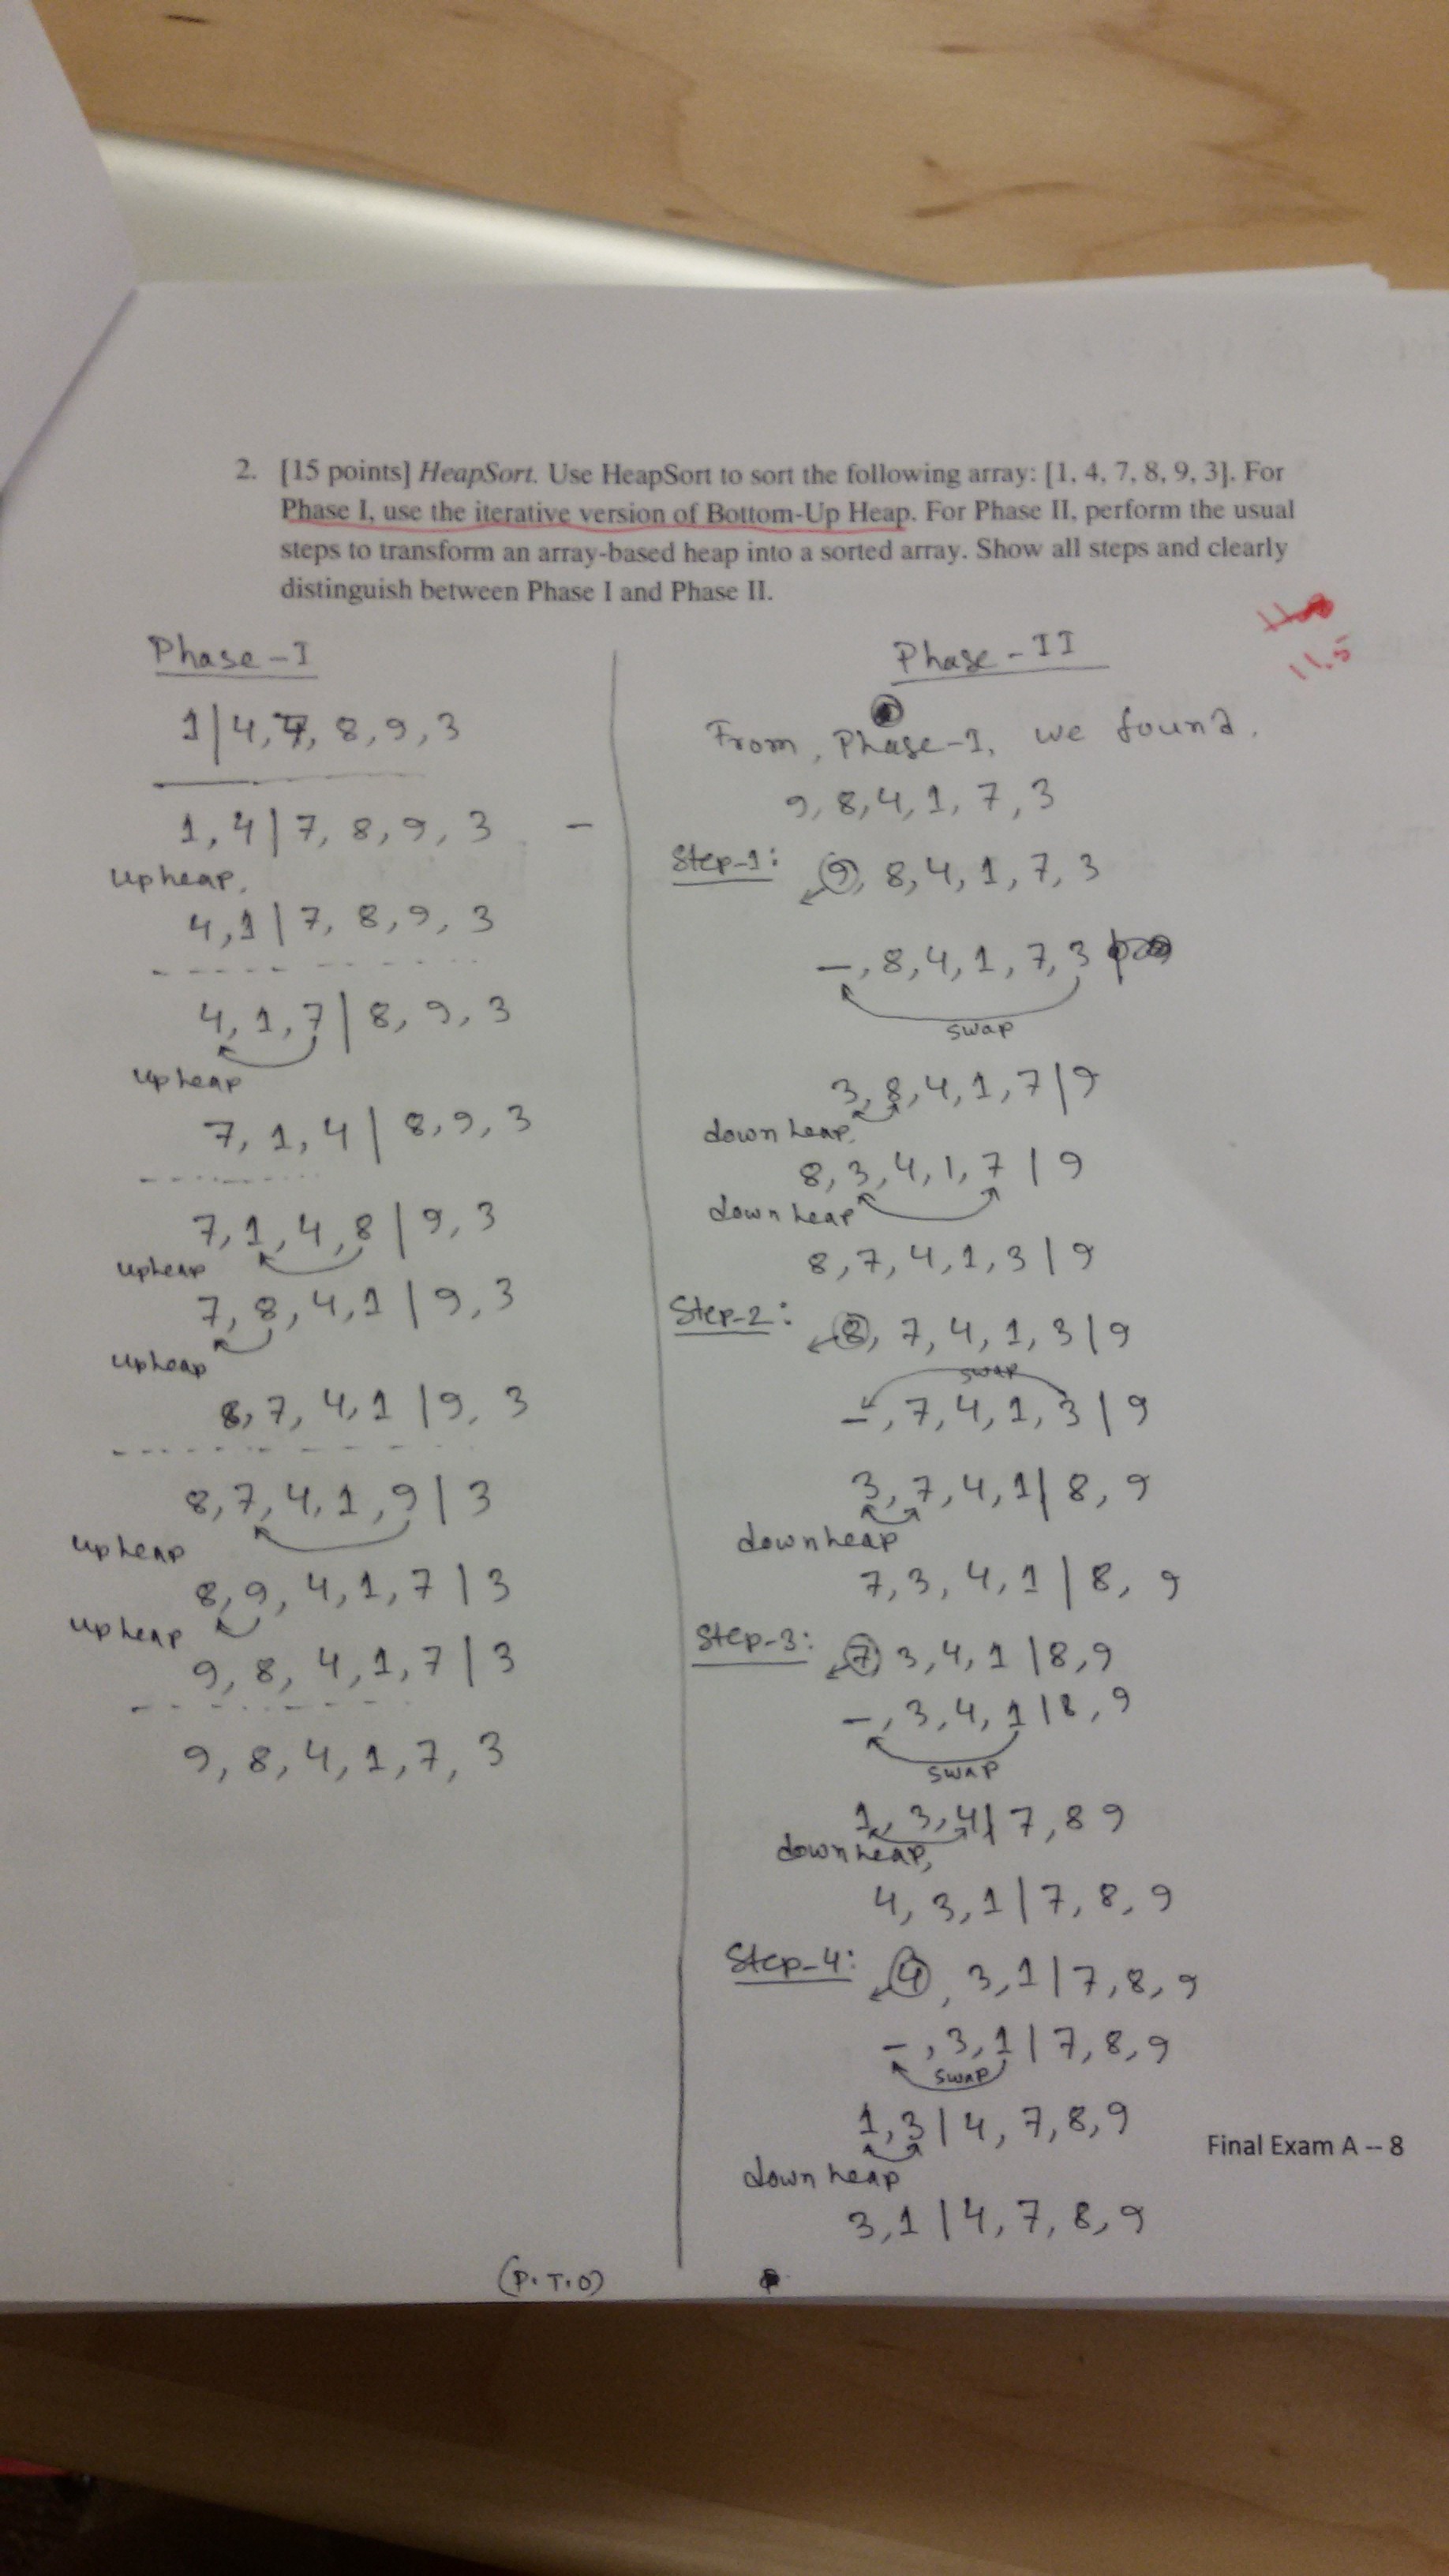 2. [15 points] HeapSort. Use HeapSort to sort the following array: [1, 4, 7, 8, 9, 3]. For
Phase I, use the iterative version of Bottom-Up Heap. For Phase II, perform the usual
steps to transform an array-based heap into a sorted array. Show all steps and clearly
distinguish between Phase I and Phase II.
11.5
Phase-I
1 | 4, 7, 8, 9, 3
1, 4 | 7, 8, 9, 3
upheap,
4, 1 | 7, 8, 9, 3
4, 1, 7 | 8, 9, 3
upheap
7, 1, 4 | 8, 9, 3
7, 1, 4, 8 | 9, 3
upheap
7, 8, 4, 1 | 9, 3
upheap
8, 7, 4, 1 | 9, 3
8, 7, 4, 1, 9 | 3
upheap
8, 9, 4, 1, 7 | 3
upheap
9, 8, 4, 1, 7 | 3
9, 8, 4, 1, 7, 3
Phase-II
From, Phase-1, we found,
9, 8, 4, 1, 7, 3
Step-1: 9, 8, 4, 1, 7, 3
–, 8, 4, 1, 7, 3
swap
3, 8, 4, 1, 7 | 9
downheap,
8, 3, 4, 1, 7 | 9
downheap
8, 7, 4, 1, 3 | 9
Step-2: 8, 7, 4, 1, 3 | 9
swap
–, 7, 4, 1, 3 | 9
3, 7, 4, 1 | 8, 9
downheap
7, 3, 4, 1 | 8, 9
Step-3: 7 3, 4, 1 | 8, 9
–, 3, 4, 1 | 8, 9
swap
1, 3, 4 | 7, 8 9
downheap,
4, 3, 1 | 7, 8, 9
Step-4: 4, 3, 1 | 7, 8, 9
–, 3, 1 | 7, 8, 9
swap
1, 3 | 4, 7, 8, 9
downheap
3, 1 | 4, 7, 8, 9
(P.T.O)
Final Exam A -- 8